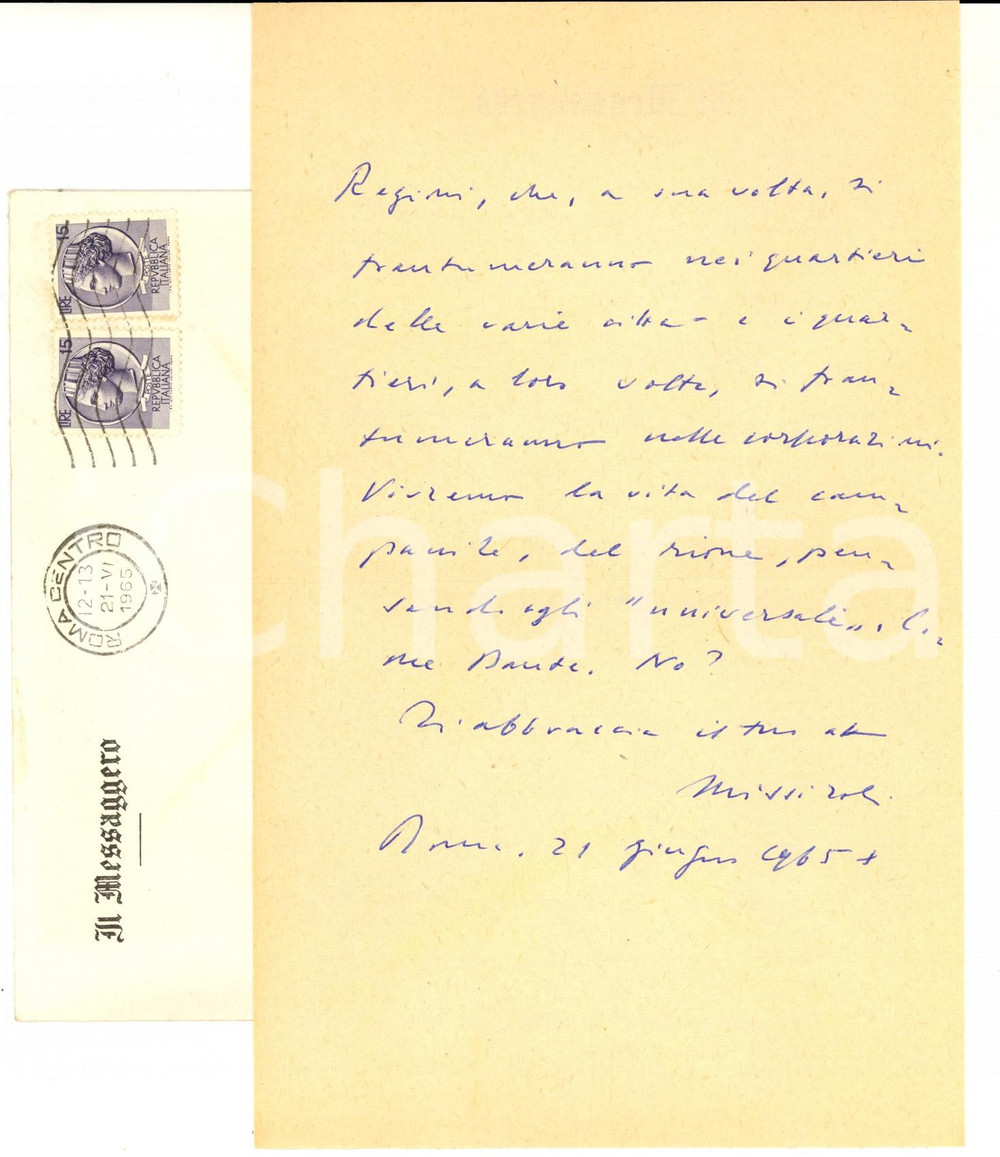 15
LIRE
POSTE
REPVBBLICA
ITALIANA
15
LIRE
POSTE
REPVBBLICA
ITALIANA
ROMA CENTRO
12-13
21-VI
1965
Il Messaggero
Regioni, che, a sua volta, si
frantumeranno nei quartieri
delle varie città – e i quar-
tieri, a loro volta, si fran-
tumeranno nelle corporazioni.
Vivremo la vita del cam-
panile, del rione, pen-
sando agli "universali",
me Dante. No?
Ti abbraccia il tuo
Missiroli.
Roma, 21 giugno 1965
Charta